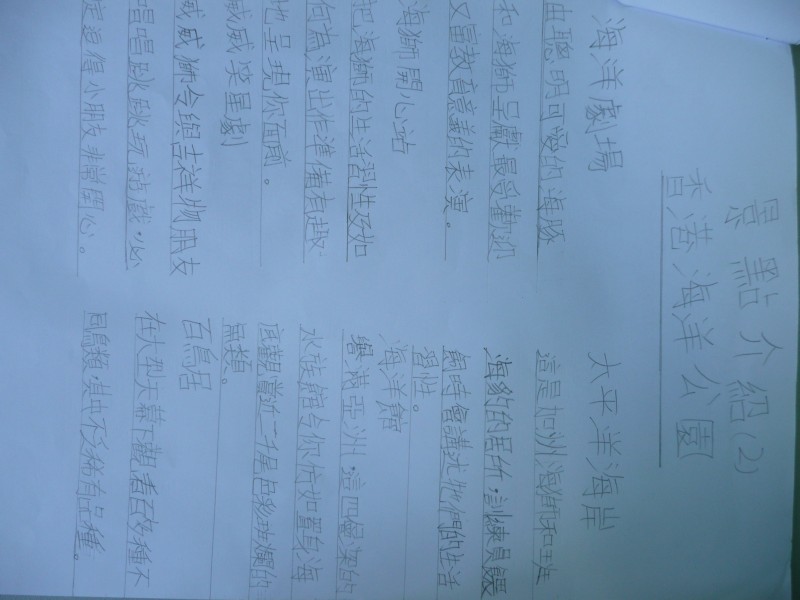 景點介紹(2)
香港海洋公園
海洋劇場
由聰明可愛的海豚
和海獅呈獻最受歡迎
又富教育意義的表演。
海獅開心站
把海獅的生活習性及如
何為演出作準備有趣
地呈現你面前。
威威笑星劇
威威獅令組吉祥物朋友
唱唱跳跳玩遊戲,必
定逗得小朋友非常開心。
太平洋海岸
這是加州海獅和斑
海豹的居所,訓練員餵
飼時會講述牠們的生活
習性。
海洋館
譽滿亞洲,這四層架的
水族館令你恍如置身海
底觀賞近二千尾色彩斑斕的
魚類。
百鳥居
在大型天幕下觀看百多種不
同鳥類,其中不少稀有品種。